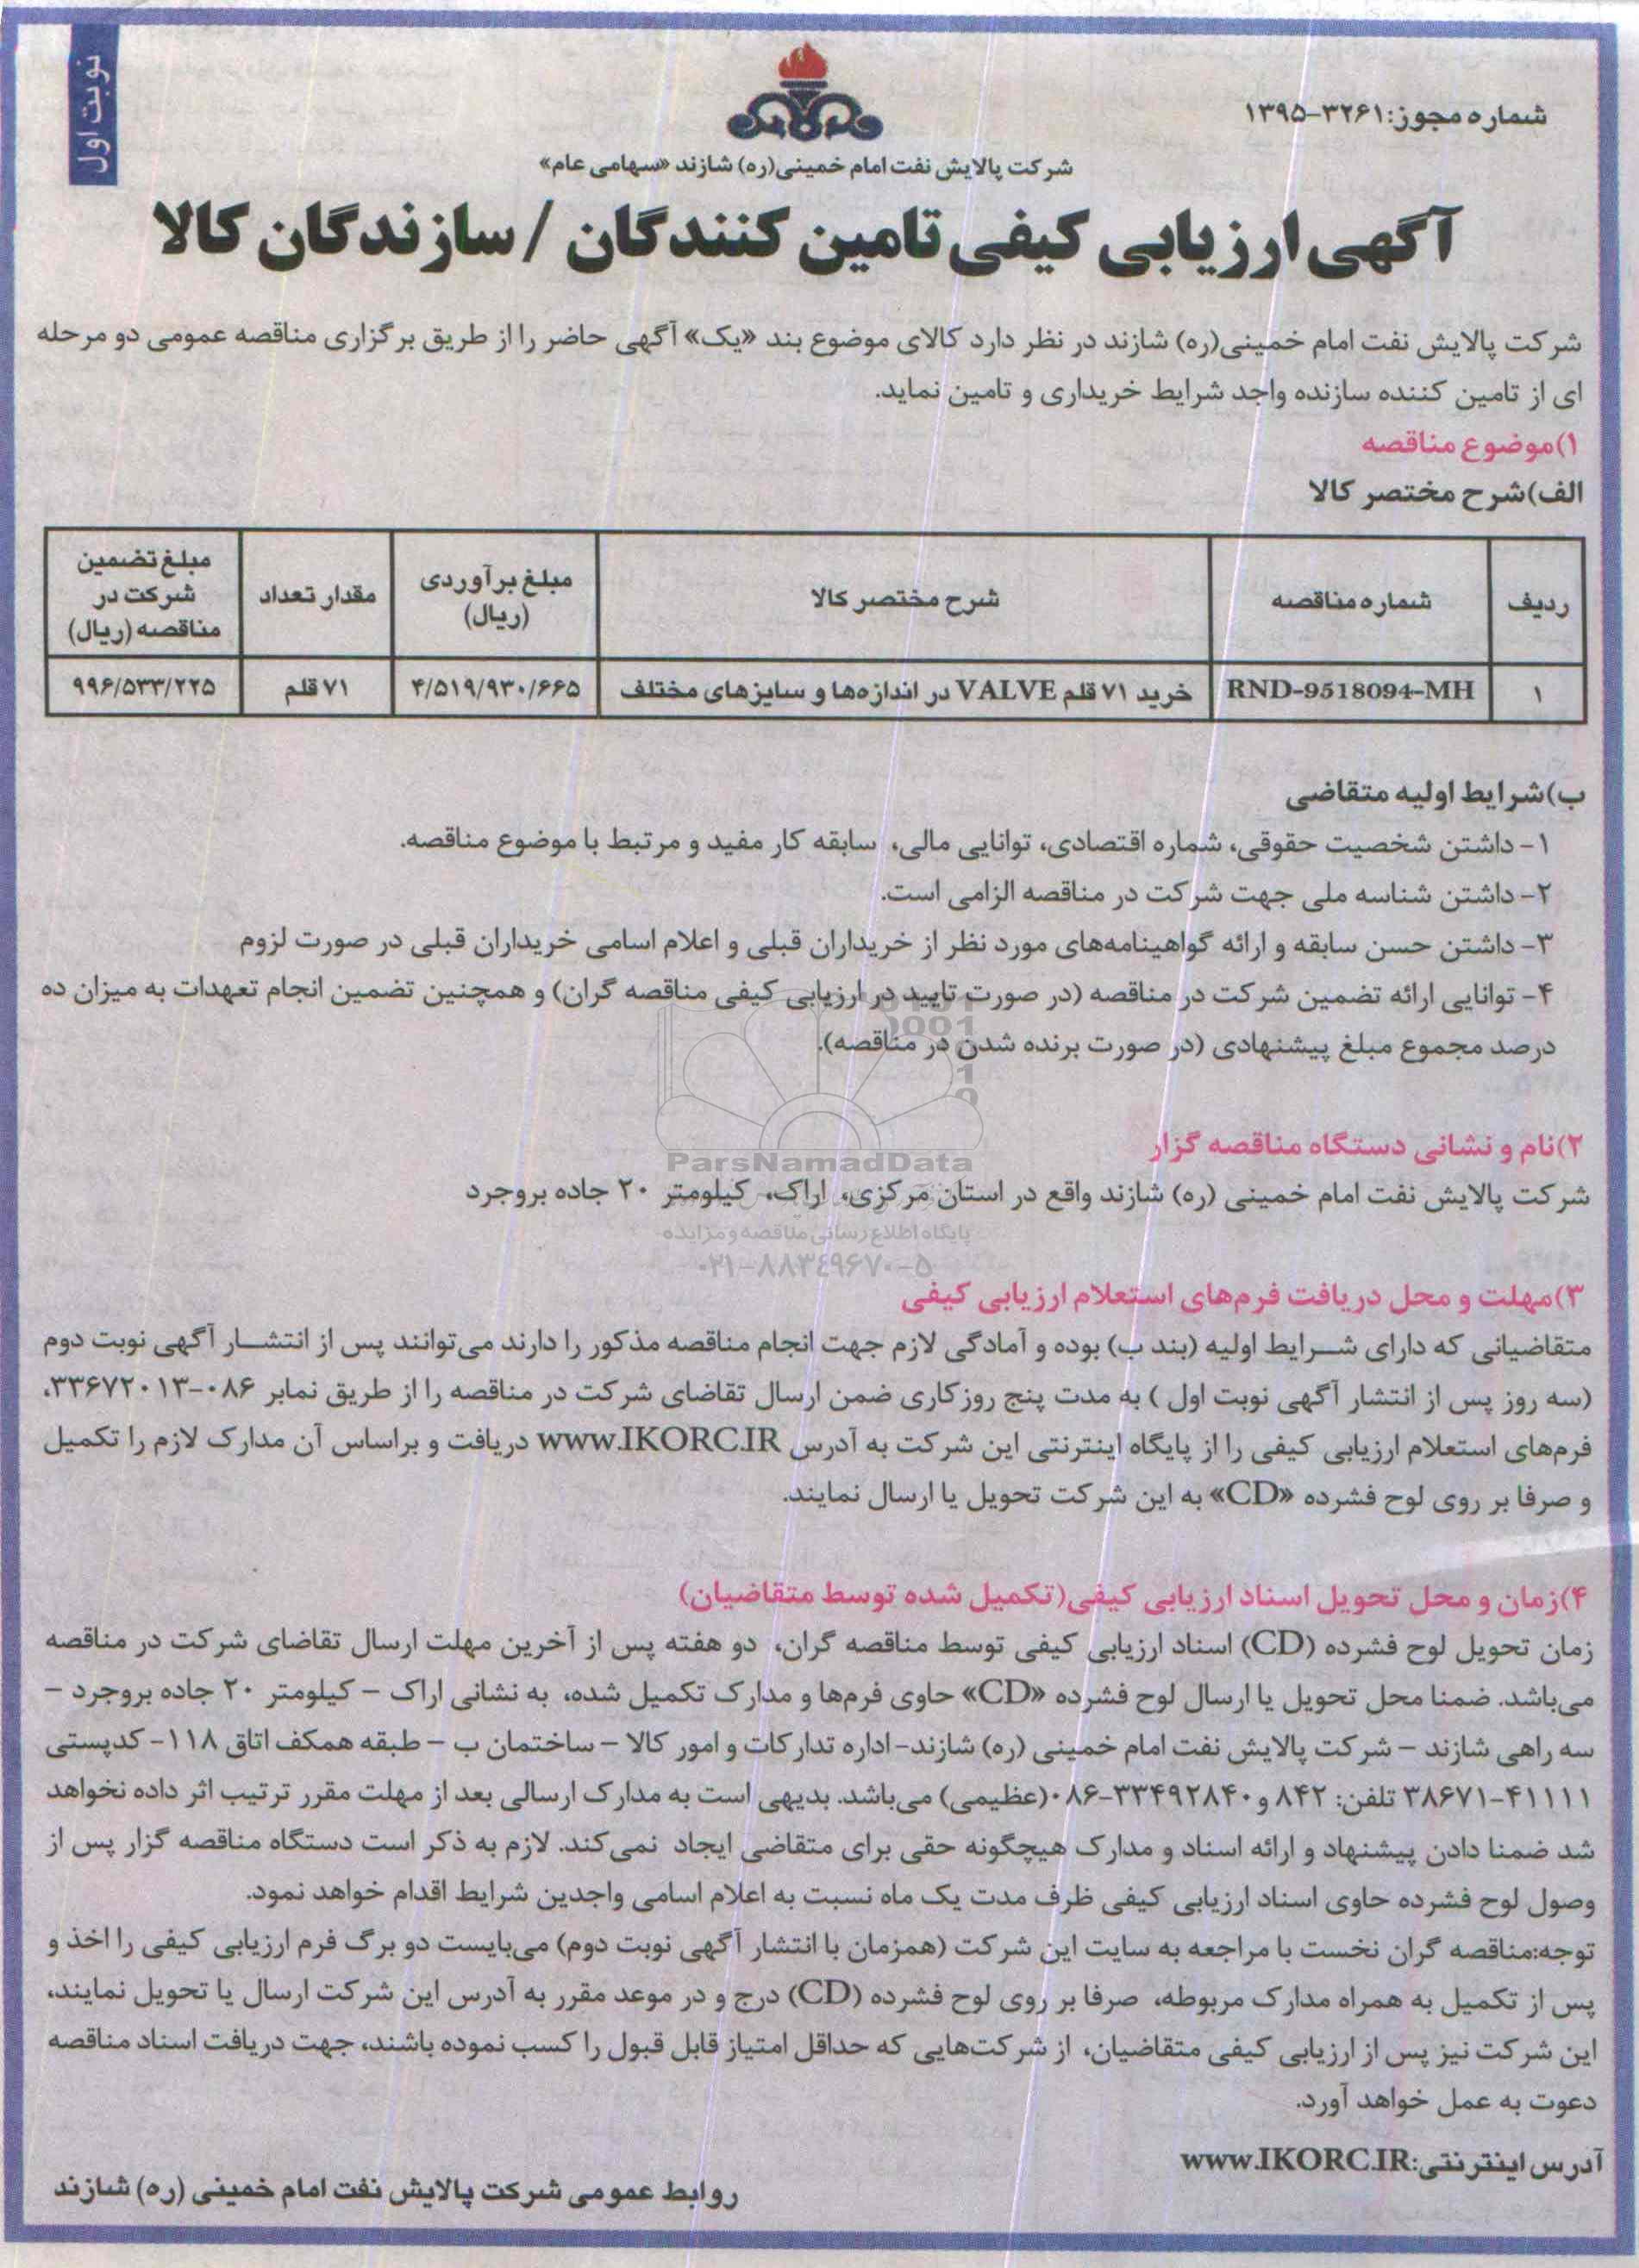 نوبت اول
شماره مجوز: ۳۲۶۱-۱۳۹۵
شرکت پالایش نفت امام خمینی(ره) شازند «سهامی عام»
آگهی ارزیابی کیفی تامین کنندگان / سازندگان کالا
شرکت پالایش نفت امام خمینی(ره) شازند در نظر دارد کالای موضوع بند «یک» آگهی حاضر را از طریق برگزاری مناقصه عمومی دو مرحله
ای از تامین کننده سازنده واجد شرایط خریداری و تامین نماید.
۱)موضوع مناقصه
الف)شرح مختصر کالا
ردیف | شماره مناقصه | شرح مختصر کالا | مبلغ برآوردی (ریال) | مقدار تعداد | مبلغ تضمین شرکت در مناقصه (ریال)
۱ | RND-9518094-MH | خرید ۷۱ قلم VALVE در اندازه‌ها و سایزهای مختلف | ۴/۵۱۹/۹۳۰/۶۶۵ | ۷۱ قلم | ۹۹۶/۵۳۳/۲۲۵
ب)شرایط اولیه متقاضی
۱- داشتن شخصیت حقوقی، شماره اقتصادی، توانایی مالی، سابقه کار مفید و مرتبط با موضوع مناقصه.
۲- داشتن شناسه ملی جهت شرکت در مناقصه الزامی است.
۳- داشتن حسن سابقه و ارائه گواهینامه‌های مورد نظر از خریداران قبلی و اعلام اسامی خریداران قبلی در صورت لزوم
۴- توانایی ارائه تضمین شرکت در مناقصه (در صورت تایید در ارزیابی کیفی مناقصه گران) و همچنین تضمین انجام تعهدات به میزان ده
درصد مجموع مبلغ پیشنهادی (در صورت برنده شدن در مناقصه).
۲)نام و نشانی دستگاه مناقصه گزار
ParsNamadData
شرکت پالایش نفت امام خمینی (ره) شازند واقع در استان مرکزی، اراک، کیلومتر ۲۰ جاده بروجرد
پایگاه اطلاع رسانی مناقصه و مزایده
۰۲۱-۸۸۳۴۹۶۷۰-۵
۳)مهلت و محل دریافت فرم‌های استعلام ارزیابی کیفی
متقاضیانی که دارای شرایط اولیه (بند ب) بوده و آمادگی لازم جهت انجام مناقصه مذکور را دارند می‌توانند پس از انتشار آگهی نوبت دوم
(سه روز پس از انتشار آگهی نوبت اول ) به مدت پنج روز کاری ضمن ارسال تقاضای شرکت در مناقصه را از طریق نمابر ۰۸۶-۳۳۶۷۲۰۱۳،
فرم‌های استعلام ارزیابی کیفی را از پایگاه اینترنتی این شرکت به آدرس www.IKORC.IR دریافت و براساس آن مدارک لازم را تکمیل
و صرفا بر روی لوح فشرده «CD» به این شرکت تحویل یا ارسال نمایند.
۴)زمان و محل تحویل اسناد ارزیابی کیفی(تکمیل شده توسط متقاضیان)
زمان تحویل لوح فشرده (CD) اسناد ارزیابی کیفی توسط مناقصه گران، دو هفته پس از آخرین مهلت ارسال تقاضای شرکت در مناقصه
می‌باشد. ضمنا محل تحویل یا ارسال لوح فشرده «CD» حاوی فرم‌ها و مدارک تکمیل شده، به نشانی اراک – کیلومتر ۲۰ جاده بروجرد –
سه راهی شازند – شرکت پالایش نفت امام خمینی (ره) شازند- اداره تدارکات و امور کالا – ساختمان ب – طبقه همکف اتاق ۱۱۸- کدپستی
۴۱۱۱۱-۳۸۶۷۱ تلفن: ۸۴۲ و۳۳۴۹۲۸۴۰-۰۸۶(عظیمی) می‌باشد. بدیهی است به مدارک ارسالی بعد از مهلت مقرر ترتیب اثر داده نخواهد
شد ضمنا دادن پیشنهاد و ارائه اسناد و مدارک هیچگونه حقی برای متقاضی ایجاد نمی‌کند. لازم به ذکر است دستگاه مناقصه گزار پس از
وصول لوح فشرده حاوی اسناد ارزیابی کیفی ظرف مدت یک ماه نسبت به اعلام اسامی واجدین شرایط اقدام خواهد نمود.
توجه:مناقصه گران نخست با مراجعه به سایت این شرکت (همزمان با انتشار آگهی نوبت دوم) می‌بایست دو برگ فرم ارزیابی کیفی را اخذ و
پس از تکمیل به همراه مدارک مربوطه، صرفا بر روی لوح فشرده (CD) درج و در موعد مقرر به آدرس این شرکت ارسال یا تحویل نمایند،
این شرکت نیز پس از ارزیابی کیفی متقاضیان، از شرکت‌هایی که حداقل امتیاز قابل قبول را کسب نموده باشند، جهت دریافت اسناد مناقصه
دعوت به عمل خواهد آورد.
آدرس اینترنتی:www.IKORC.IR
روابط عمومی شرکت پالایش نفت امام خمینی (ره) شازند